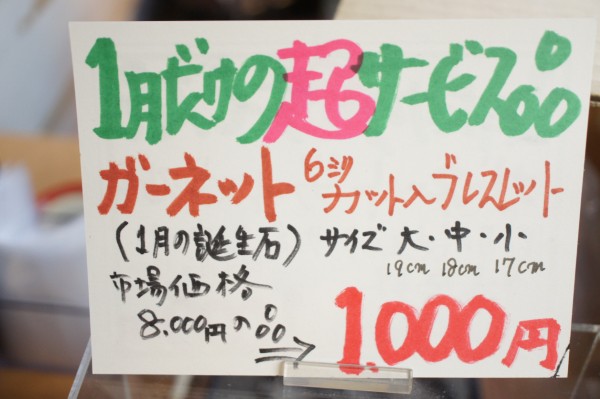 1月だけの超サービス品
ガーネット 6ミリカット入ブレスレット
(1月の誕生石) サイズ 大・中・小
19cm 18cm 17cm
市場価格
8.000円の品 ⇒ 1.000円